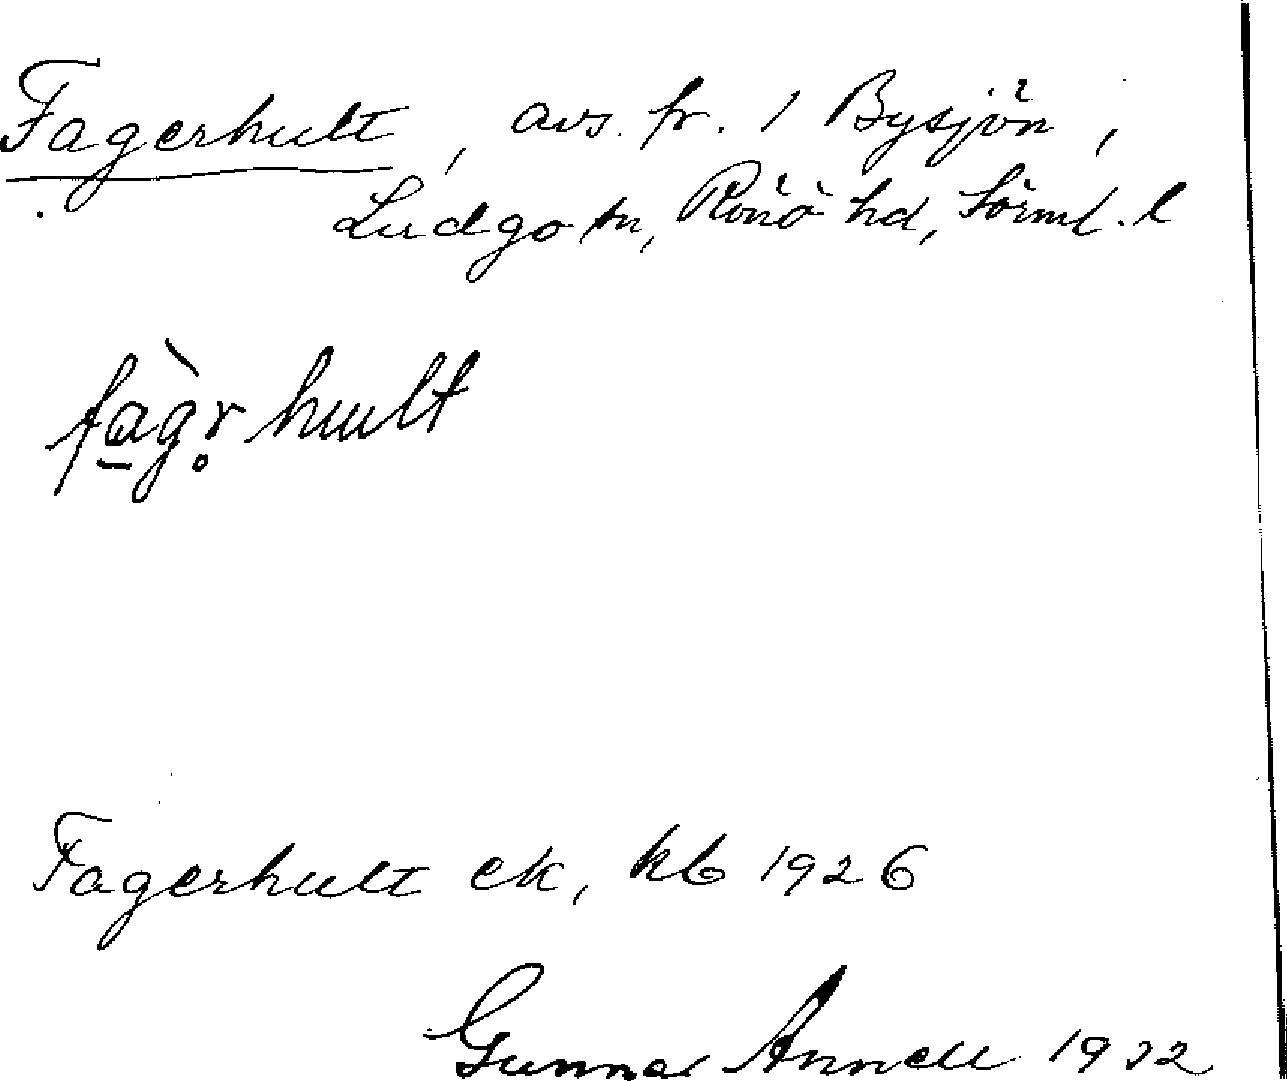 Fagerhult, avs. fr. 1 Bysjön,
Ludgo sn, Rönö hd, Sörml. l
fà̲gr̥hult
Fagerhult ek, kb 1926
Gunnar Annell 1932